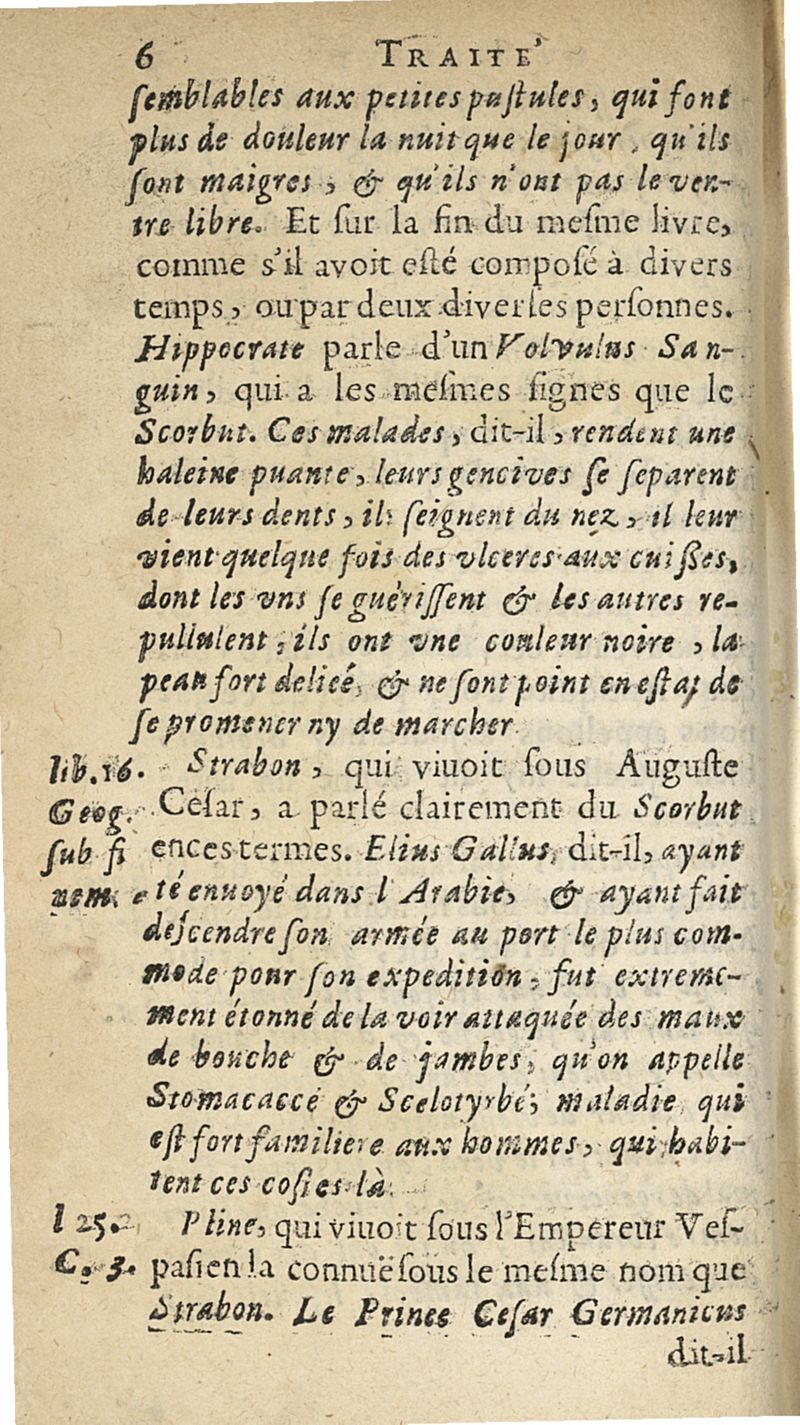 6 TRAITE'
ſemblables aux petites puſtules, qui font
plus de douleur la nuit que le jour, qu'ils
ſont maigres, & qu'ils n'ont pas le ven-
tre libre. Et ſur la fin du meſme livre,
comme s'il avoit eſté compoſé à divers
temps, ou par deux diverſes perſonnes.
Hippocrate parle d'un Volvulus San-
guin, qui a les meſmes ſignes que le
Scorbut. Ces malades, dit-il, rendent une
haleine puante, leurs gencives ſe ſeparent
de leurs dents, ils ſeignent du nez, il leur
vient quelque fois des vlceres aux cuiſſes,
dont les vns ſe guériſſent & les autres re-
pullulent, ils ont vne couleur noire, la
peau fort delieé, & ne ſont point en eſtat de
ſe promener ny de marcher
lib. 16. Strabon, qui vivoit ſous Auguſte
Geog. Céſar, a parlé clairement du Scorbut
ſub fi en ces termes. Elius Gallus, dit-il, ayant
nem. eté envoyé dans l'Arabie, & ayant fait
deſcendre ſon armée au port le plus com-
mode pour ſon expedition, fut extreme-
ment étonné de la voir attaquée des maux
de bouche & de jambes, qu'on appelle
Stomacaccé & Scelotyrbé; maladie qui
eſt fort familiere aux hommes, qui habi-
tent ces coſtes là.
l 25. Pline, qui vivoit ſous l'Empereur Veſ-
C. 3. paſien la connuë ſous le meſme nom que
Strabon. Le Prince Ceſar Germanicus
dit-il